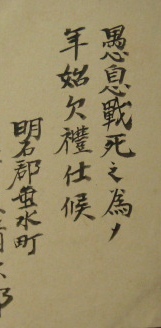 愚息戰死之為メ
年始欠禮仕候
明石郡垂水町